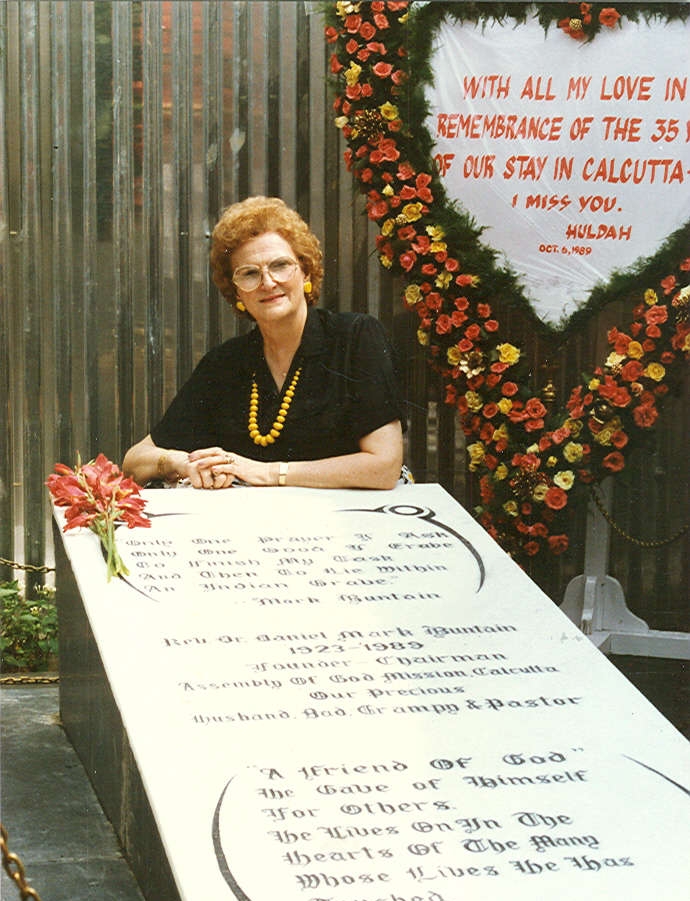 WITH ALL MY LOVE IN
REMEMBRANCE OF THE 35
OF OUR STAY IN CALCUTTA-
I MISS YOU.
HULDAH
OCT. 6, 1989
Only One Prayer I Ask
Only One Good I Crave
To Finish My Task
And Then To Lie Within
An Indian Grave."
"Mark Buntain
Rev. Dr. Daniel Mark Buntain
1923-1989
Founder - Chairman
Assembly Of God Mission, Calcutta
Our Precious
Husband, Dad, Grampy & Pastor
"A Friend Of God"
He Gave of Himself
For Others.
He Lives On In The
Hearts Of The Many
Whose Lives He Has
Touched.